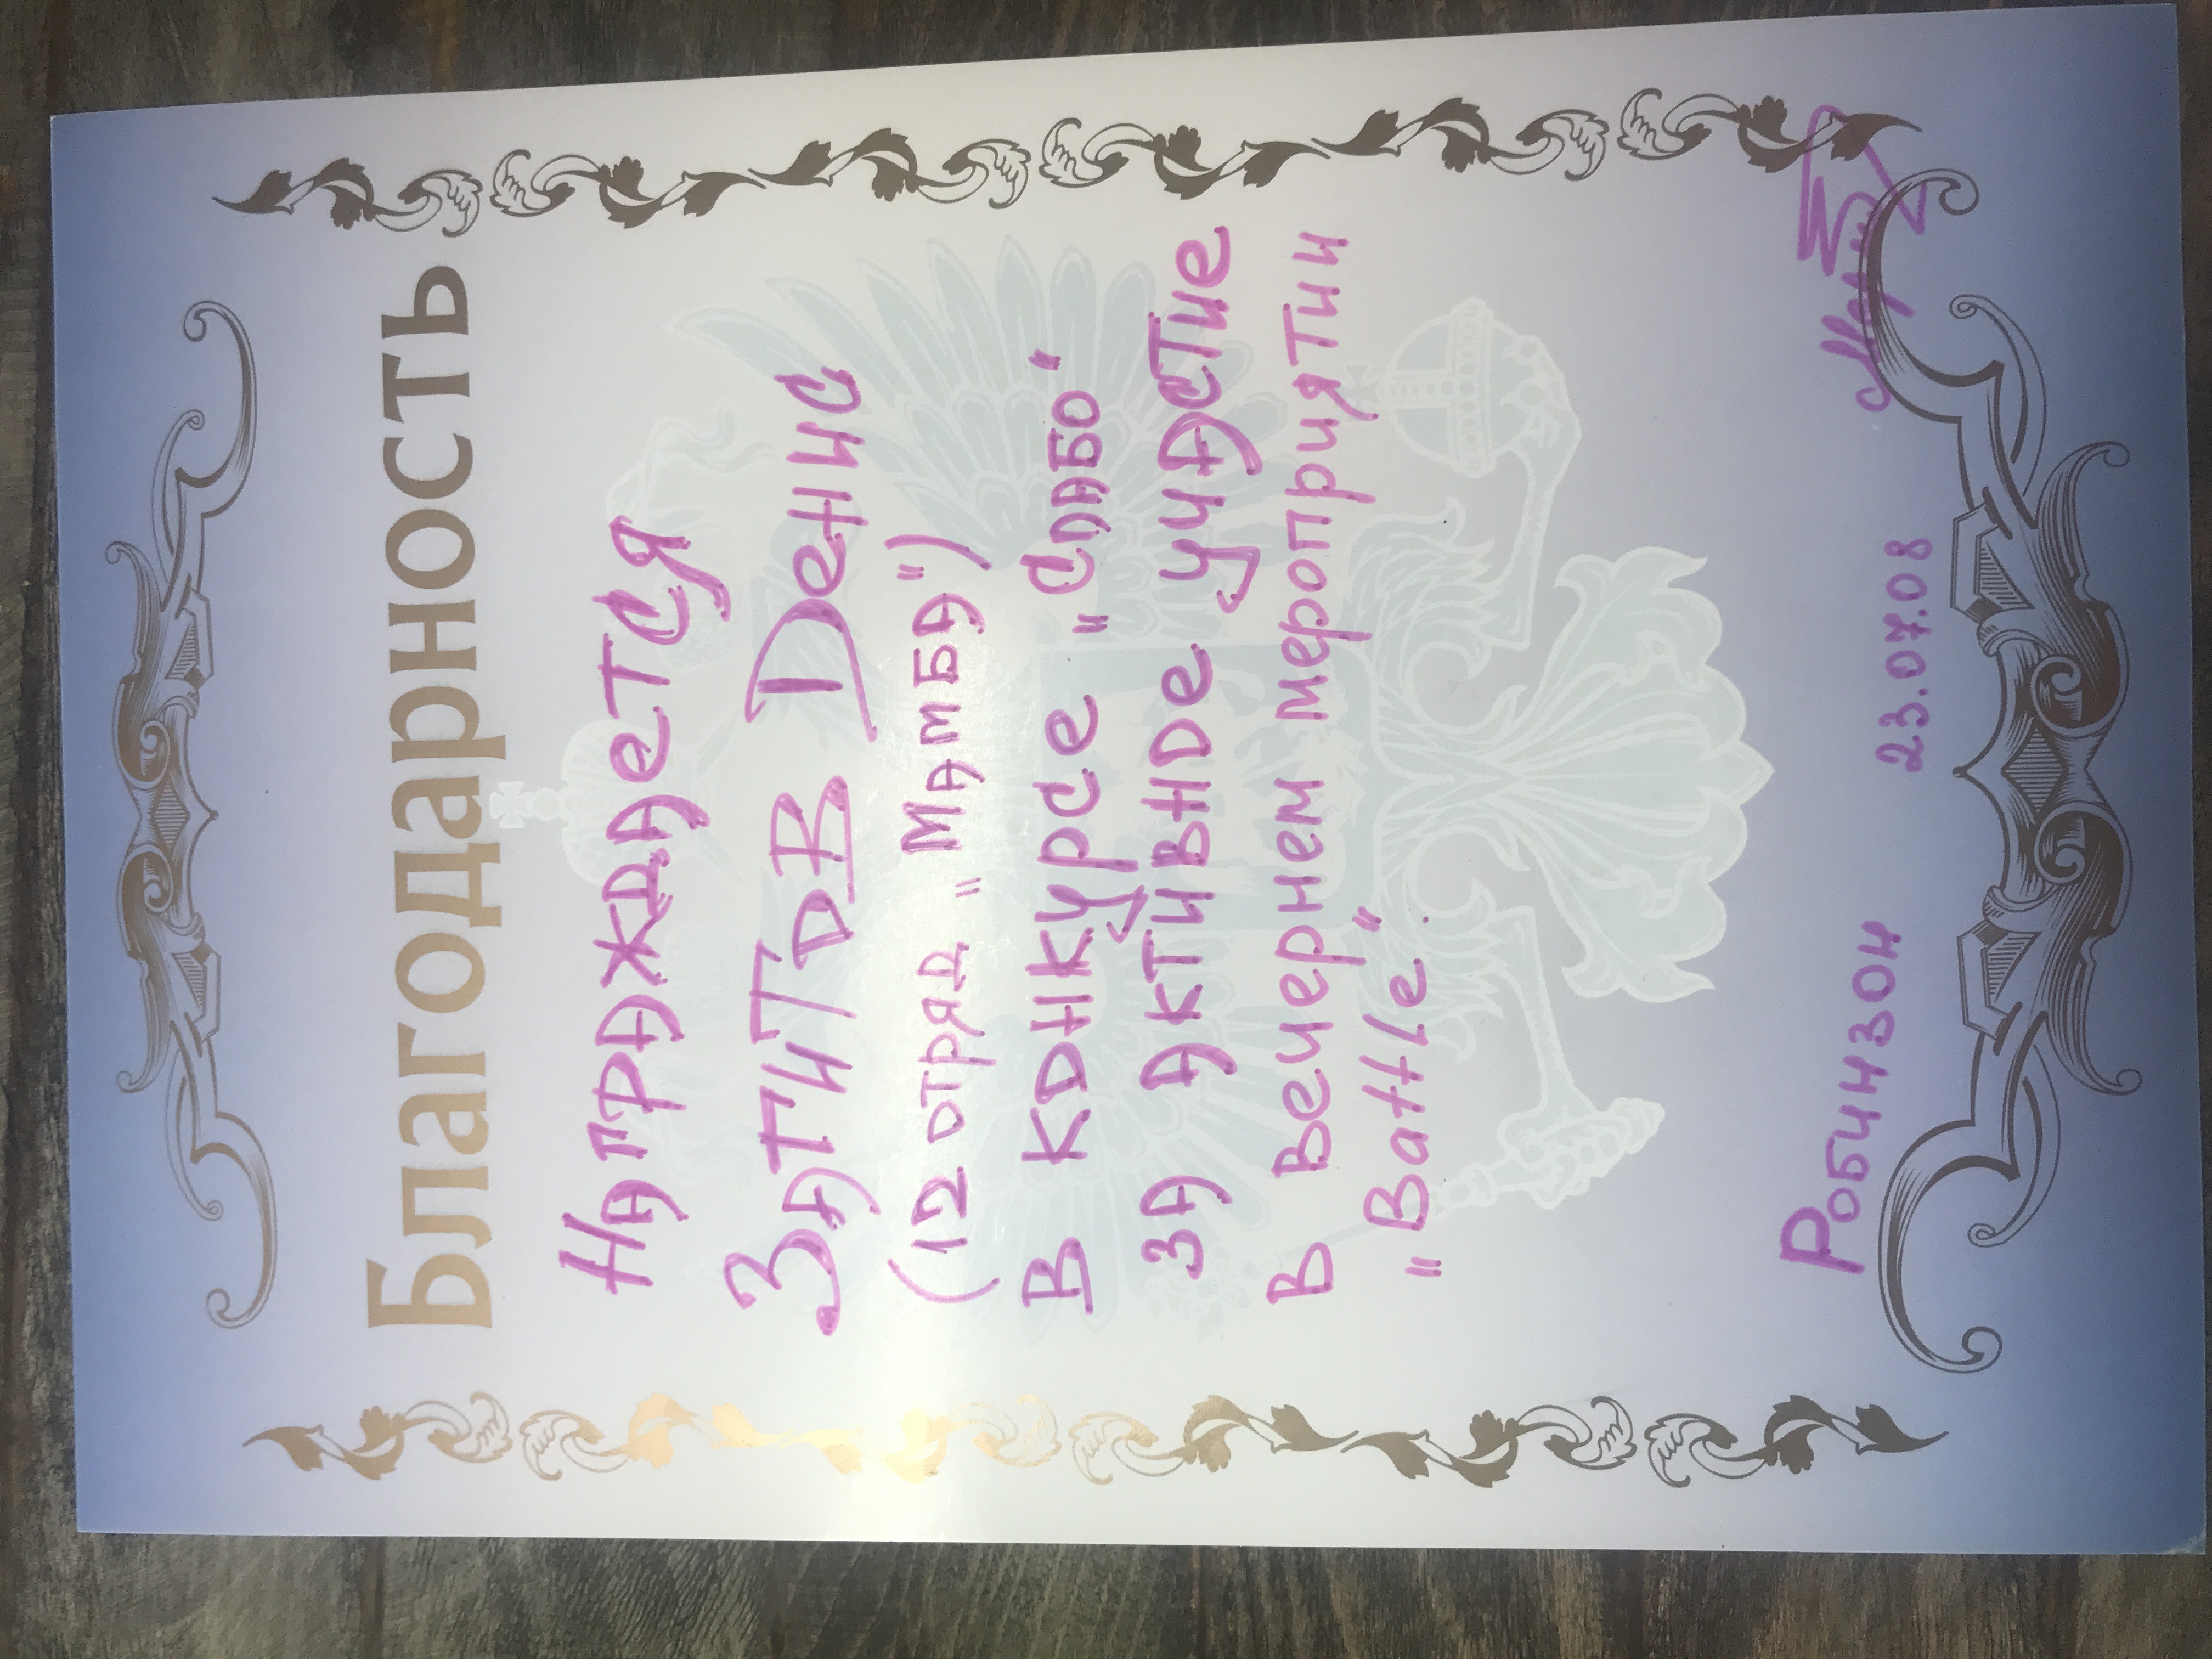 Благодарность
Награждается
Загитов Денис
(12 отряд „Мамба“)
в конкурсе „Слабо“
за активное участие
в вечернем мероприятии
„Battle“.
Робинзон
23.07.08